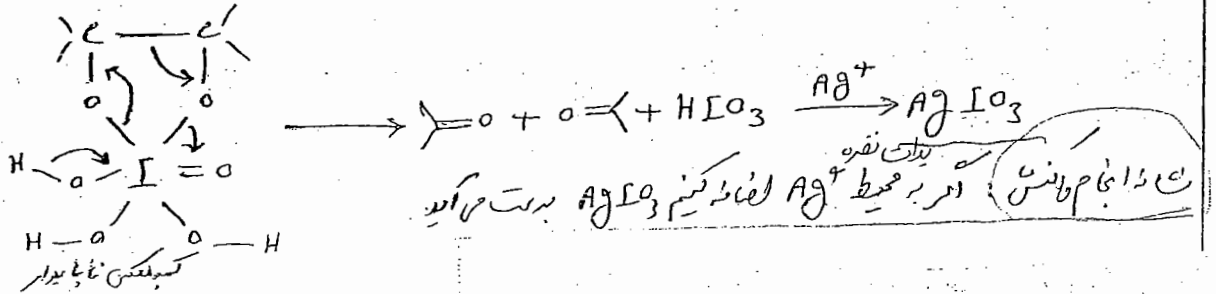 C — C
O O
H O I = O
H — O O — H
کمپلکس ناپایدار
>=O + O=< + HIO3 Ag+ AgIO3
یدات نقره
نشانه انجام واکنش) اگر به محیط Ag+ اضافه کنیم AgIO3 بدست می آید